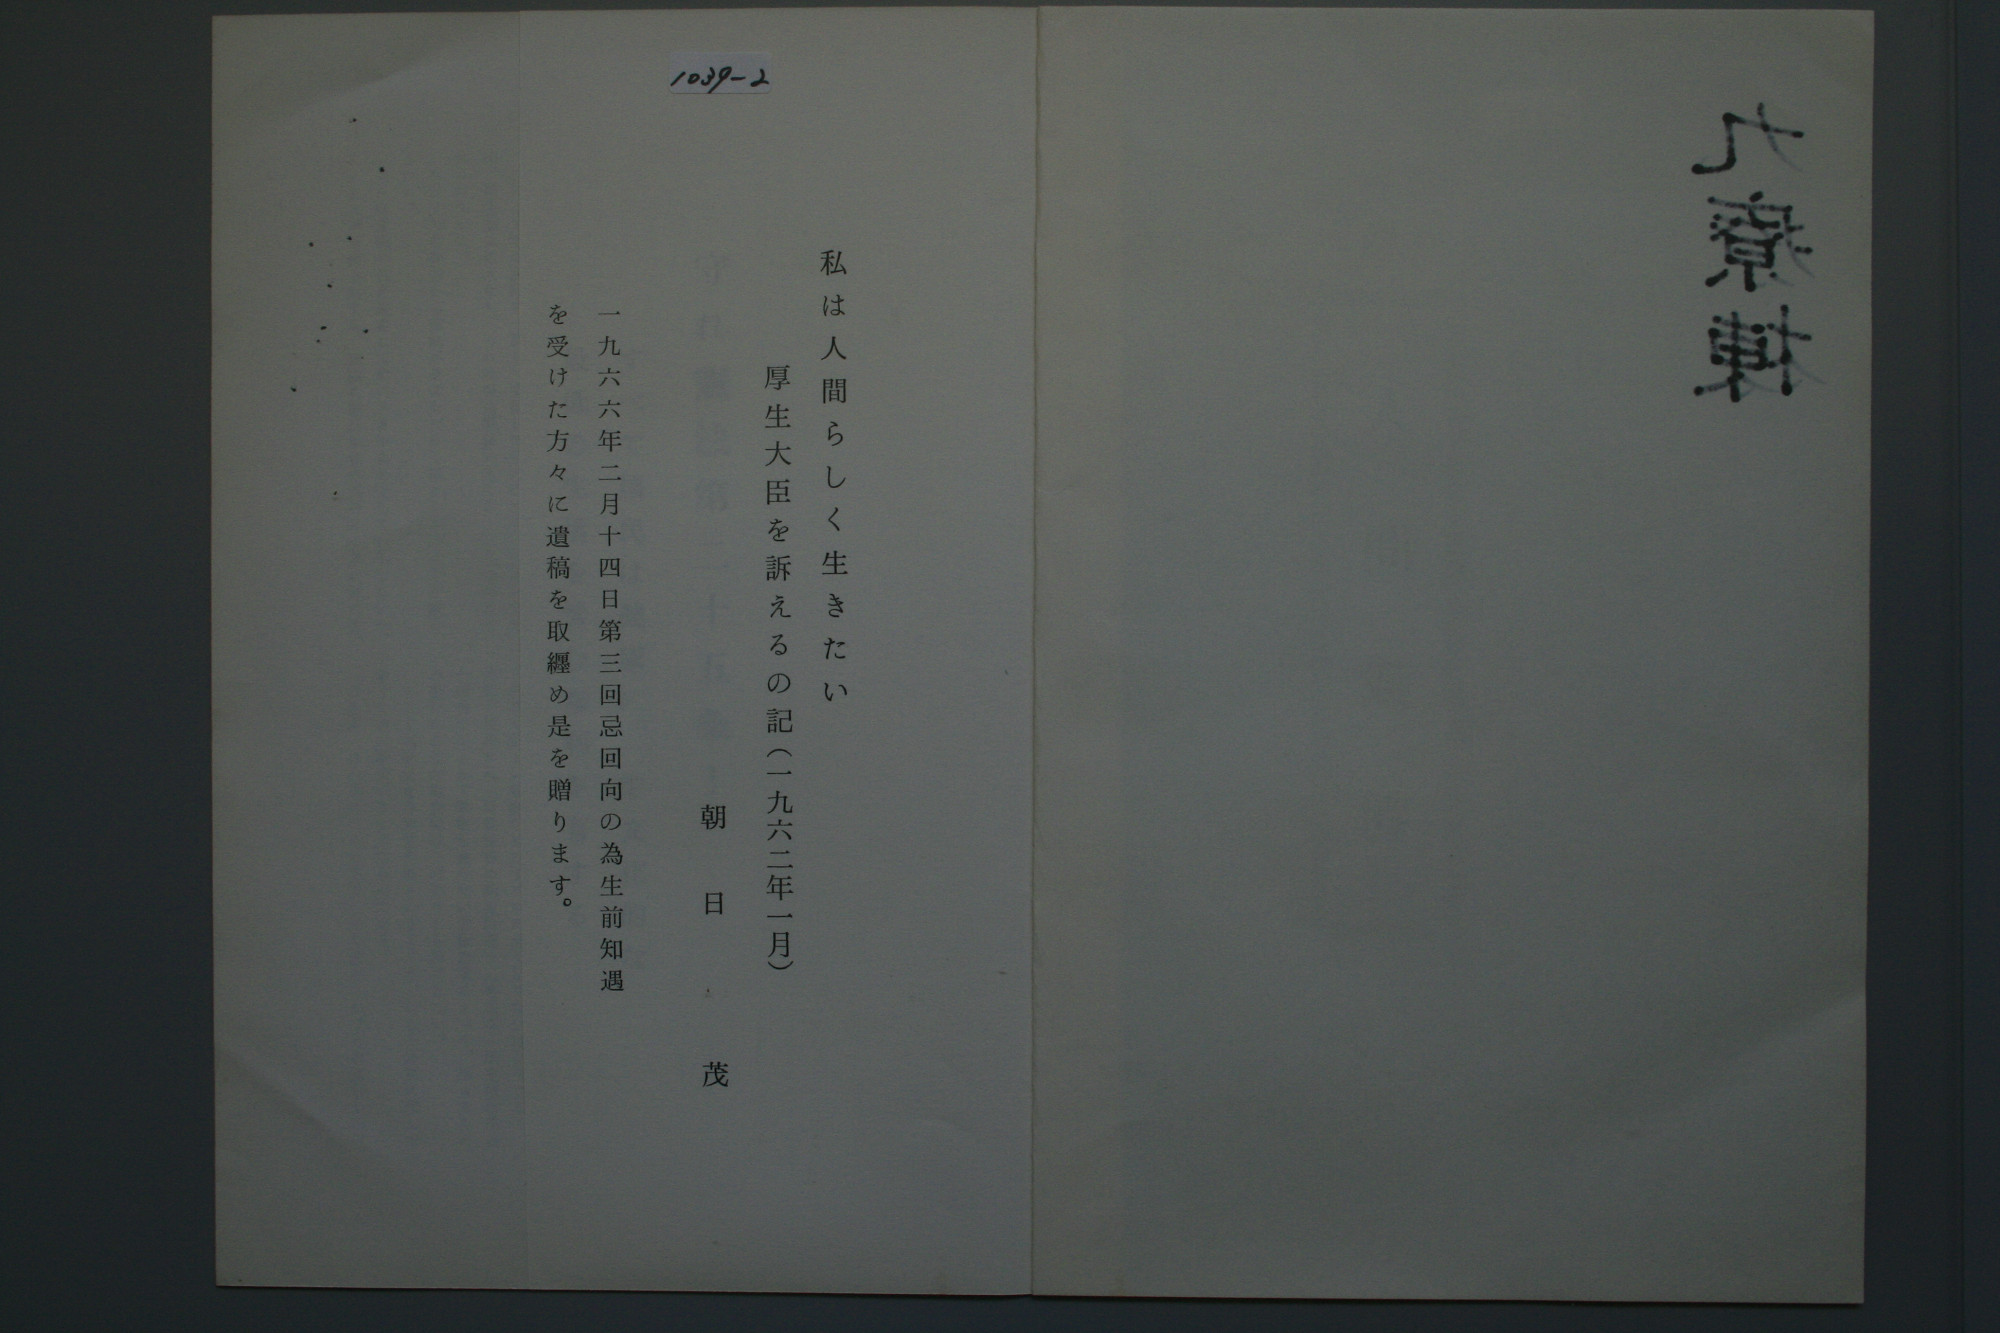 九療棟
1039-2
私は人間らしく生きたい
厚生大臣を訴えるの記(一九六二年一月)
朝日茂
一九六六年二月十四日第三回忌回向の為生前知遇
を受けた方々に遺稿を取纒め是を贈ります。